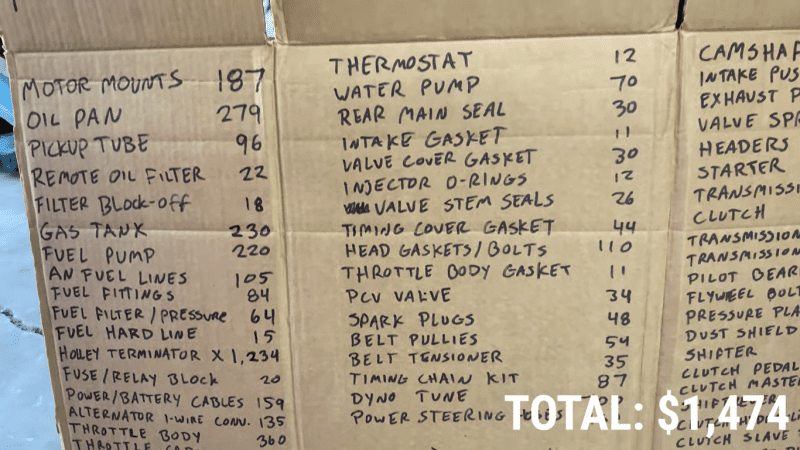 MOTOR MOUNTS 187
OIL PAN 279
PICKUP TUBE 96
REMOTE OIL FILTER 22
FILTER BLOCK-OFF 18
GAS TANK 230
FUEL PUMP 220
AN FUEL LINES 105
FUEL FITTINGS 84
FUEL FILTER/PRESSURE 64
FUEL HARD LINE 15
HOLLEY TERMINATOR X 1,234
FUSE/RELAY BLOCK 20
POWER/BATTERY CABLES 159
ALTERNATOR 1-WIRE CONV. 135
THROTTLE BODY 360
THROTTLE
THERMOSTAT 12
WATER PUMP 70
REAR MAIN SEAL 30
INTAKE GASKET 11
VALVE COVER GASKET 30
INJECTOR O-RINGS 12
VALVE STEM SEALS 26
TIMING COVER GASKET 44
HEAD GASKETS/BOLTS 110
THROTTLE BODY GASKET 11
PCV VALVE 34
SPARK PLUGS 48
BELT PULLIES 54
BELT TENSIONER 35
TIMING CHAIN KIT 87
DYNO TUNE
POWER STEERING
CAMSHAF
INTAKE PUS
EXHAUST P
VALVE SPR
HEADERS
STARTER
TRANSMISSI
CLUTCH
TRANSMISSION
TRANSMISSION
PILOT BEAR
FLYWHEEL BOLT
PRESSURE PLA
DUST SHIELD
SHIFTER
CLUTCH PEDAL
CLUTCH MASTER
CLUTCH SLAVE
TOTAL: $1,474